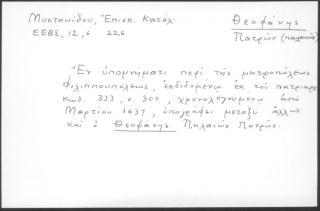 Μυστακίδου, Ἐπισκ. Κατάλ.
Θεοφάνης
ΕΕΒΣ, 12, σ 226
Πατρῶν (παλαιῶν)
Ἐν ὑπομνήματι περὶ τῆς μητροπόλεως
Φιλιππουπόλεως, ἐκδιδομένῳ ἐκ τοῦ πατριαρχ.
κωδ. 333, σ. 302, χρονολογουμένῳ ἀπὸ
Μαρτίου 1637, ὑπογράφει μεταξὺ ἄλλων
καὶ ὁ Θεοφάνης Παλαιῶν Πατρῶν.